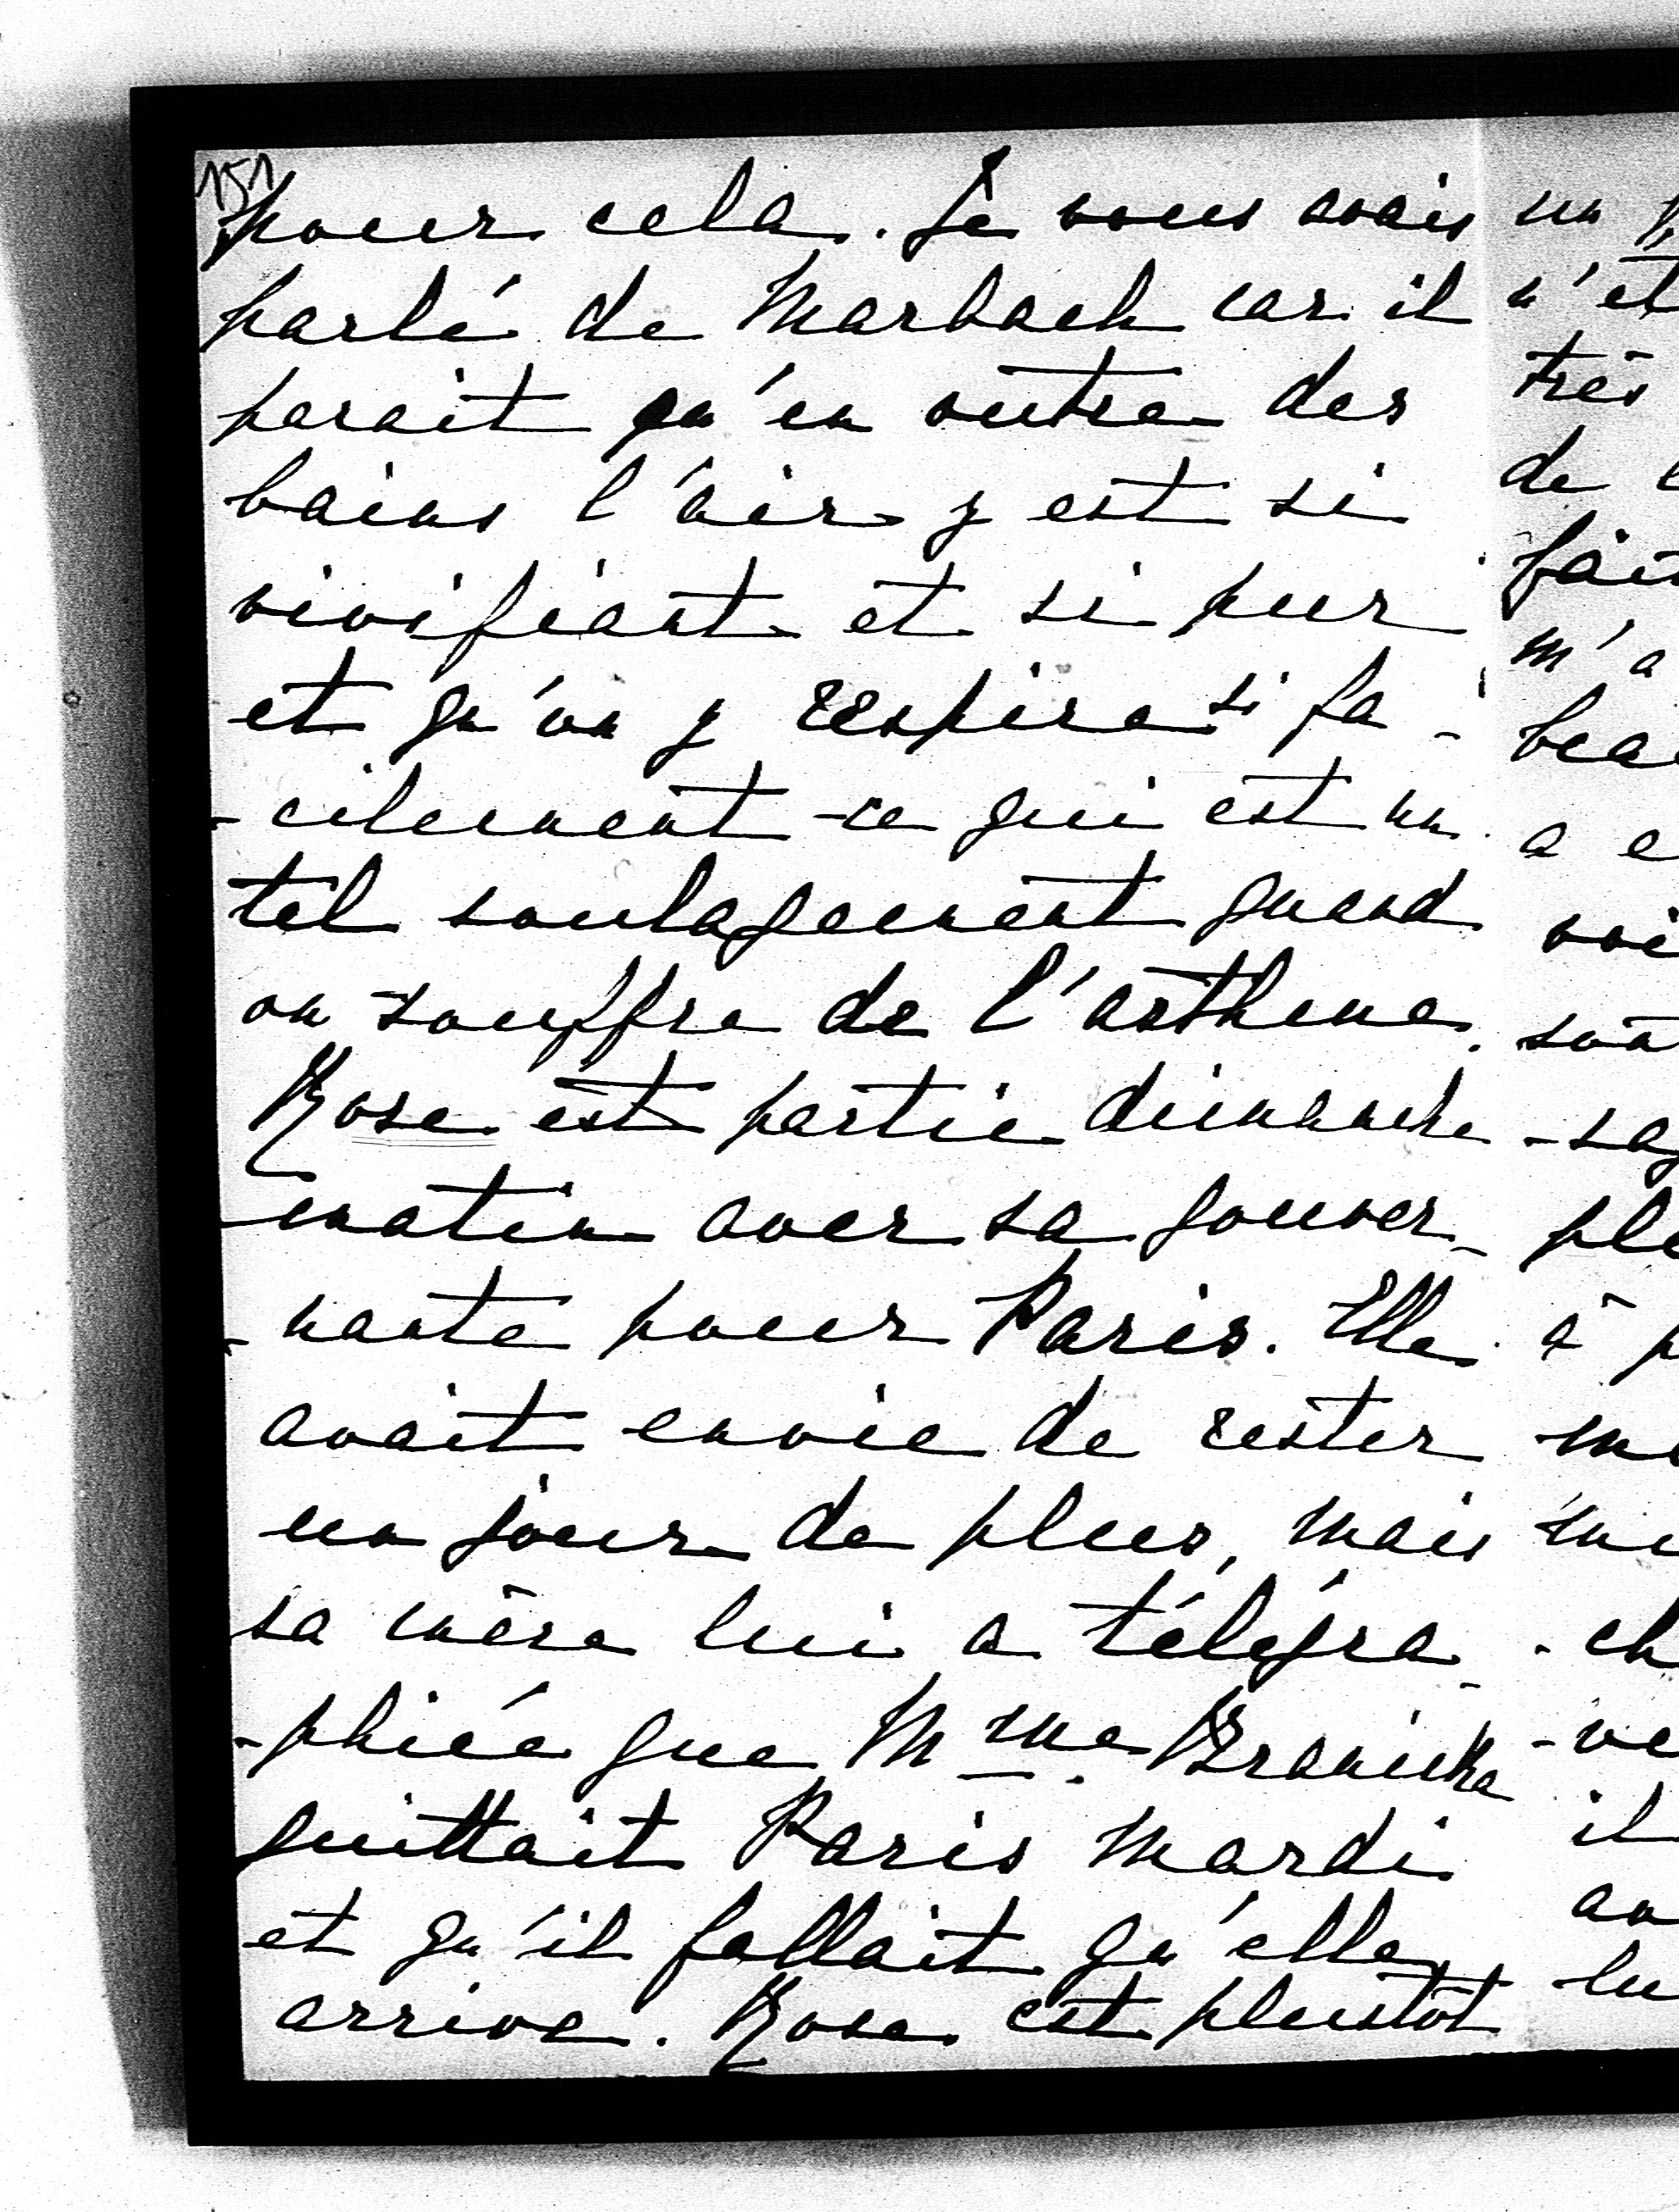 151
pour cela. Je vous avais
parlé de Marbach car il
parait qu'en outre des
bains l'air y est si
vivifiant et si pur
et qu'on y respire si fa-
-cilement - ce qui est un
tel soulagement quand
on souffre de l'asthme.
Rose est partie dimanche
matin avec sa gouver-
-nante pour Paris. Elle
avait envie de rester
un jour de plus, mais
sa mère lui a télégra-
-phiée que Mme Branicka
quittait Paris mardi
et qu'il fallait qu'elle
arrive. Rose est plustôt
un
n'ét
très
de
fait
m'a
bea
a e
voi
soi
-sa
ple
à p
me
-ch
-ve
il
an
lu